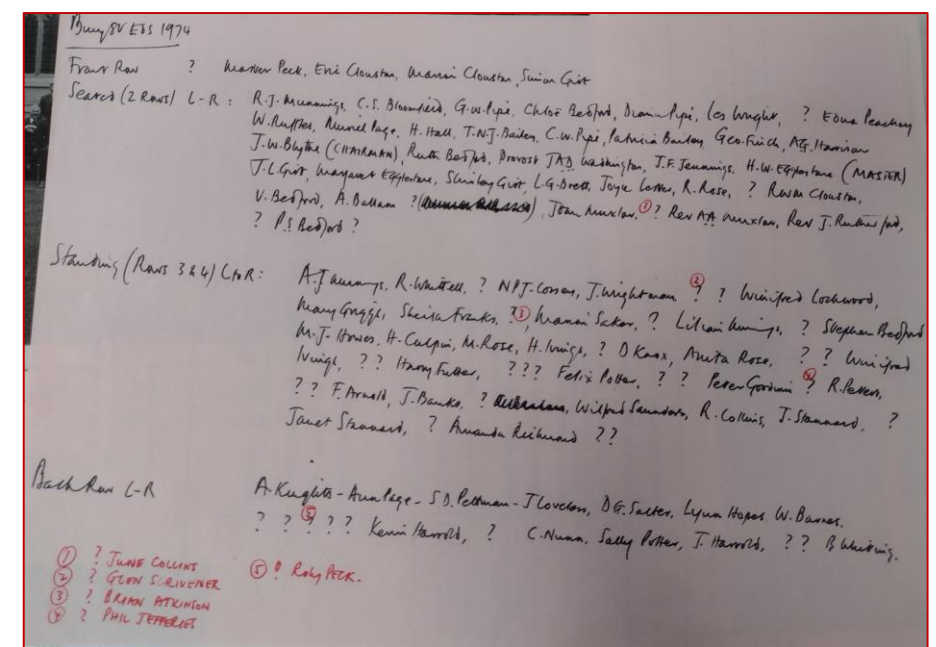 Bury St Eds 1974
Front Row ? Marner Peck, Eric Clouston, Marian Clouston, Simon Girt
Seated (2 Rows) L-R : R.J. Munnings, C.S. Bloomfield, G.W. Pipe, Chloe Bedford, Diana Pipe, Les Wright, ? Edna Peachey
W. Ruffles, Muriel Page, H. Hall, T.N.J. Bailey, C.W. Pipe, Patricia Bailey, Geo Finch, AG. Harrison
J.W. Blythe (CHAIRMAN), Ruth Bedford, Provost JAD Waddington, J.F. Jennings, H.W. Egglestone (MASTER)
J.L. Girt, Margaret Egglestone, Shirley Girt, L.G. Brett, Joyce, R. Rose, ? Clouston,
V. Bedford, A. Ballam ? ( ), Joan Muxlow, ① ? Rev AA Muxlow, Rev J. Rutherford,
? P.S Bedford ?
Standing (Rows 3 & 4) L to R : A.J. Munnings, R. Whittell, ? NPJ. Cossey, J. Wightman ② ? ? Winifred Lockwood,
Mary Griggs, Sheila Franks, ? ③, Salter, ? Lilian, ? Stephen Bedford
M.J. Howes, H. Culpin, M. Rose, H., ? D Knox, Anita Rose, ? ? Winifred
? ? Harry Futter, ? ? ? Felix Potter, ? ? Peter Gordon ④ ? R.,
? ? F. Arnold, J. Banks, ? Wilfred Saunders, R. Collins, J. Stannard, ?
Janet Stannard, ? Amanda Richmond ? ?
Back Row L-R A. Knights - Ann Page - S.D. Pettman - J Loveless, DG. Salter, Lynn Hopes, W. Barnes.
? ? ⑤ ? ? ? Kevin Harrold, ? C. Nunn, Sally Potter, J. Harrold, ? ? B Whiting.
① ? JUNE COLLINS ⑤ ? Roly PECK.
② ? GLEN SCRIVENER
③ ? BRIAN ATKINSON
④ ? PHIL JEFFERIES